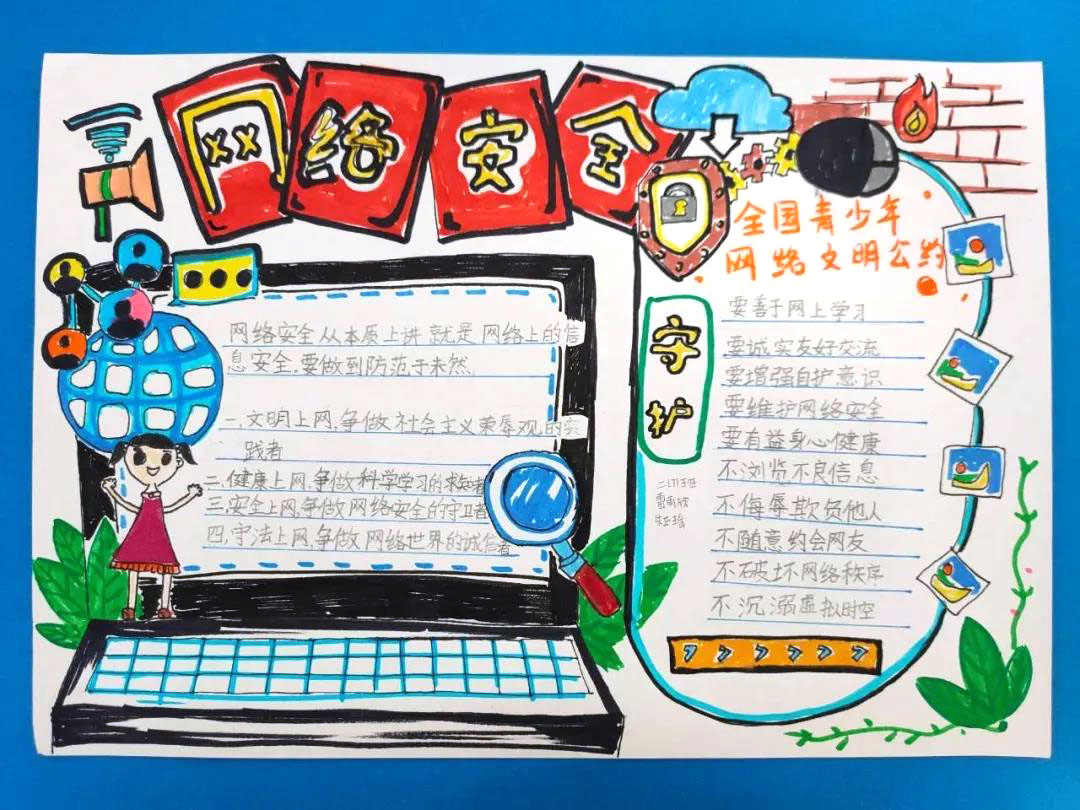 网络安全
网络安全从本质上讲就是网络上的信
息安全.要做到防范于未然.
一.文明上网,争做社会主义荣辱观的实
践者
二.健康上网,争做科学学习的求知者
三.安全上网,争做网络安全的守卫者
四.守法上网,争做网络世界的诚信者
全国青少年
网络文明公约
守护
要善于网上学习
要诚实友好交流
要增强自护意识
要维护网络安全
要有益身心健康
不浏览不良信息
不侮辱欺负他人
不随意约会网友
不破坏网络秩序
不沉溺虚拟时空